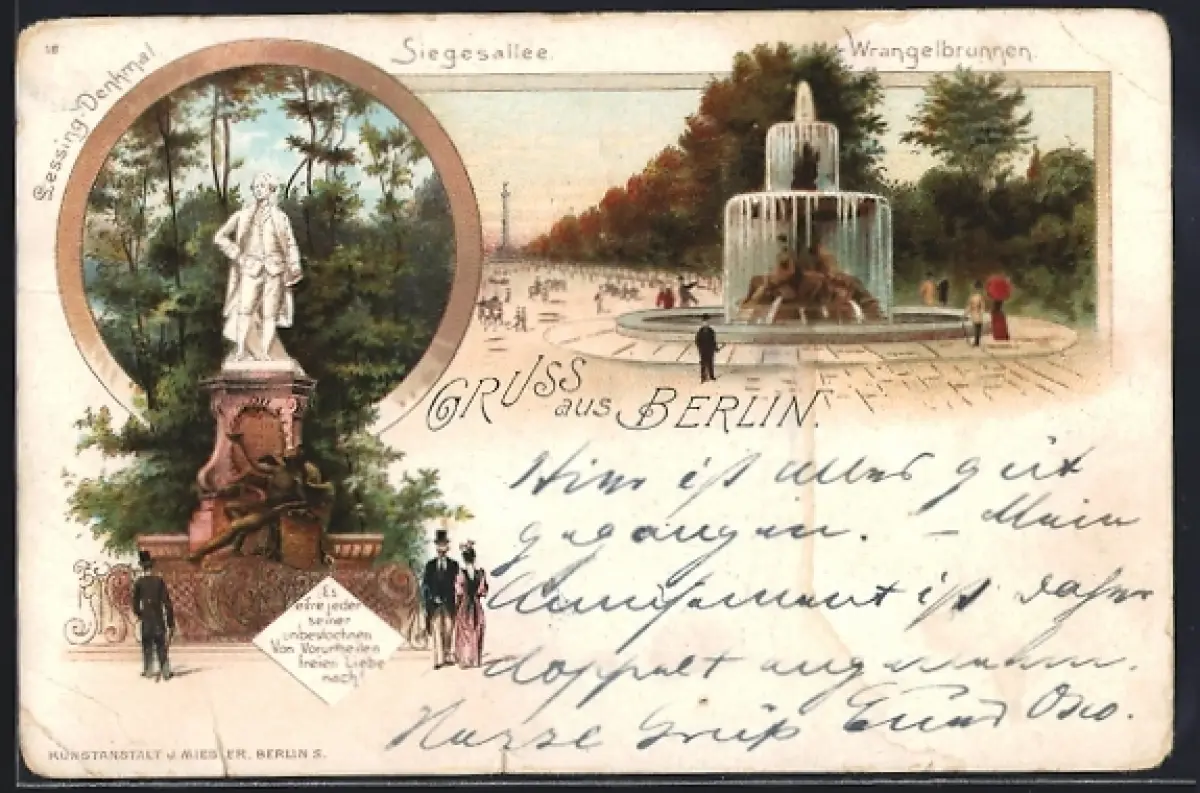 18
Siegesallee.
Wrangelbrunnen.
Lessing-Denkmal
GRUSS aus BERLIN.
Hier ist alles gut
gegangen. – Mein
Amüsement ist daher
doppelt angenehm.
Gruß
Es
eifre jeder
seiner
unbestochnen
Von Vorurtheilen
freien Liebe
nach!
KUNSTANSTALT J. MIESLER, BERLIN S.